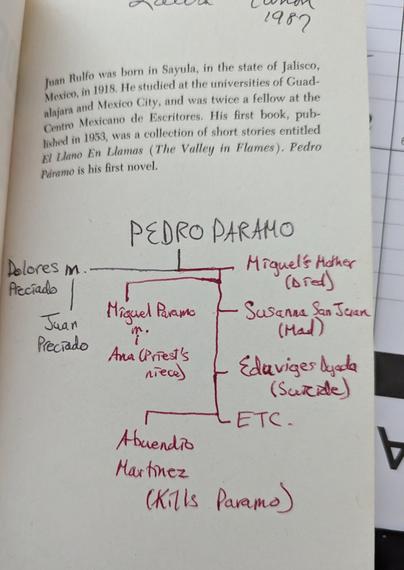 1987
Juan Rulfo was born in Sayula, in the state of Jalisco,
Mexico, in 1918. He studied at the universities of Guad-
alajara and Mexico City, and was twice a fellow at the
Centro Mexicano de Escritores. His first book, pub-
lished in 1953, was a collection of short stories entitled
El Llano En Llamas (The Valley in Flames). Pedro
Páramo is his first novel.
PEDRO PARAMO
Dolores m.
Preciado
Juan
Preciado
Miguel Paramo
m.
Ana (Priest's
niece)
Miguel's Mother
(Died)
Susanna San Juan
(Mad)
Eduviges Dyada
(Suicide)
ETC.
Abuendio
Martinez
(Kills Paramo)